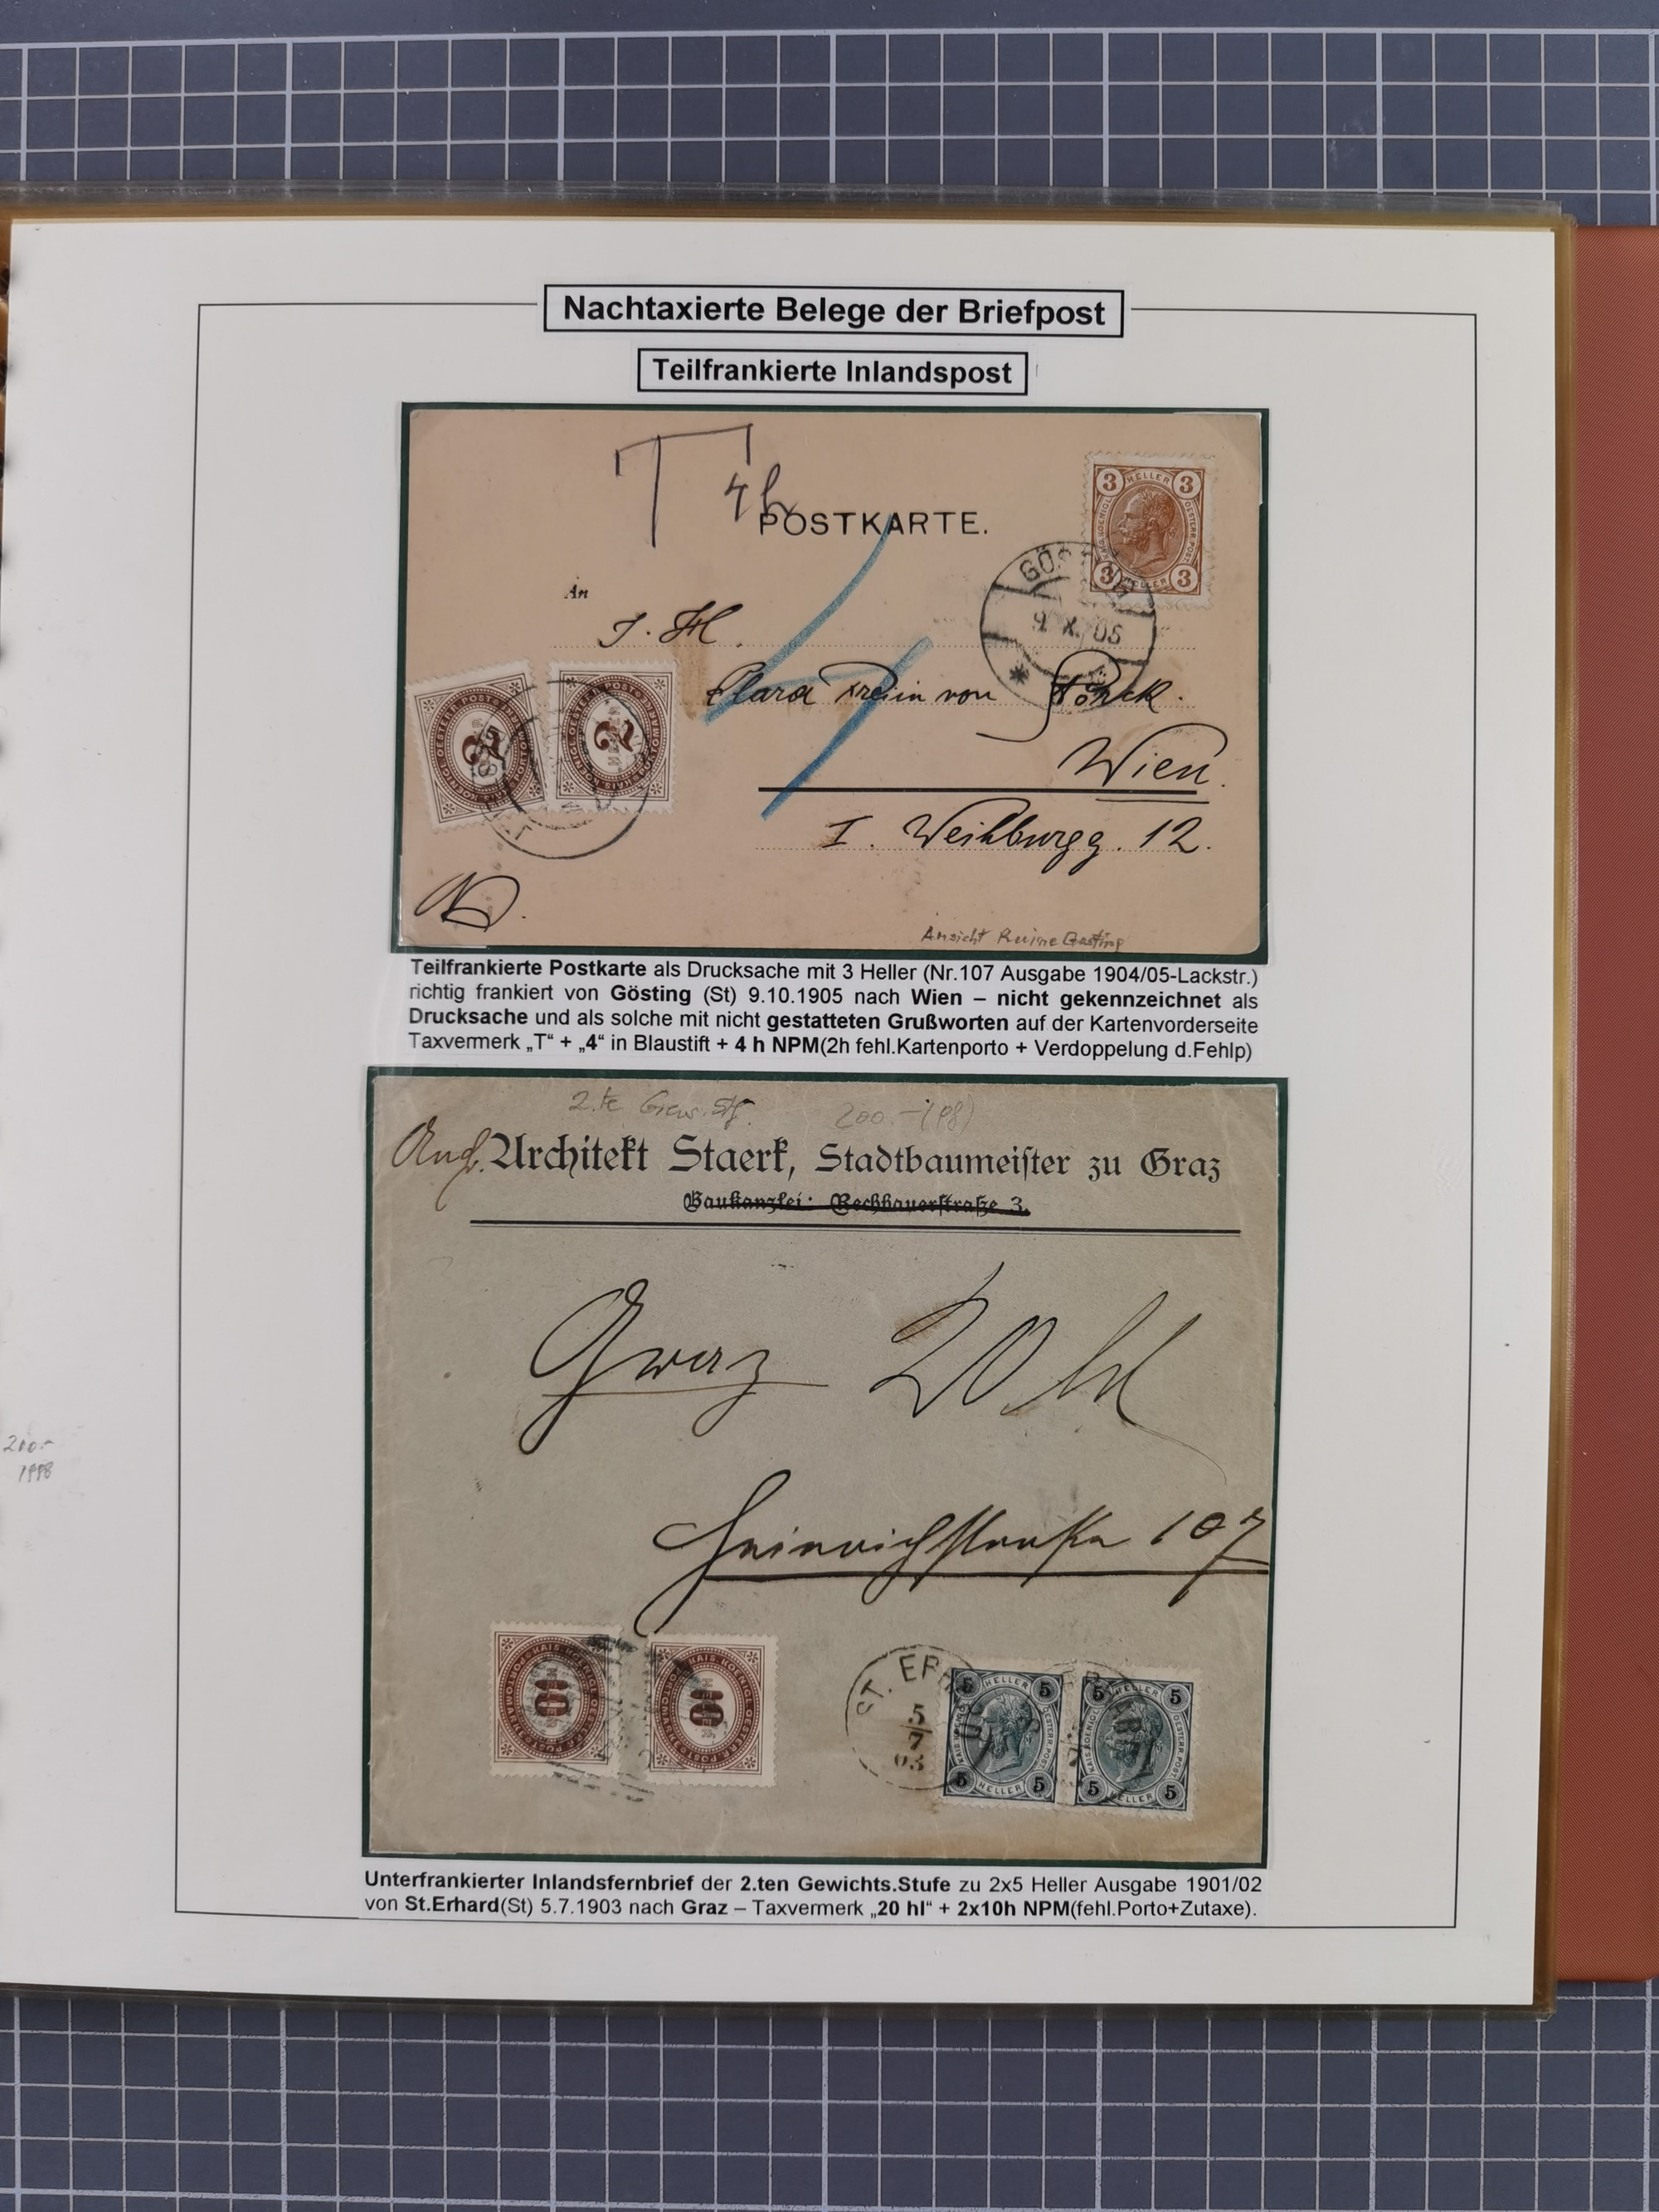 Nachtaxierte Belege der Briefpost
Teilfrankierte Inlandspost
T 4h
POSTKARTE.
3 HELLER 3
3 HELLER 3
An
9. X. 05
J. H.
Clara von
Wien.
I. Weihburgg. 12.
2
2
Ansicht Ruine Gösting
Teilfrankierte Postkarte als Drucksache mit 3 Heller (Nr.107 Ausgabe 1904/05-Lackstr.)
richtig frankiert von Gösting (St) 9.10.1905 nach Wien – nicht gekennzeichnet als
Drucksache und als solche mit nicht gestatteten Grußworten auf der Kartenvorderseite
Taxvermerk „T“ + „4“ in Blaustift + 4 h NPM(2h fehl.Kartenporto + Verdoppelung d.Fehlp)
2.te Gew. Stf. 200.-(Pf)
Architekt Staerk, Stadtbaumeister zu Graz
Baukanzlei: Rechbauerstraße 3.
Graz 20 hl
Heinrichstraße 107
10
10
ST. ERHARD
5
7
03
5 HELLER 5
5 HELLER 5
5 5
5 HELLER 5
200.-
1998
Unterfrankierter Inlandsfernbrief der 2.ten Gewichts.Stufe zu 2x5 Heller Ausgabe 1901/02
von St.Erhard(St) 5.7.1903 nach Graz – Taxvermerk „20 hl“ + 2x10h NPM(fehl.Porto+Zutaxe).